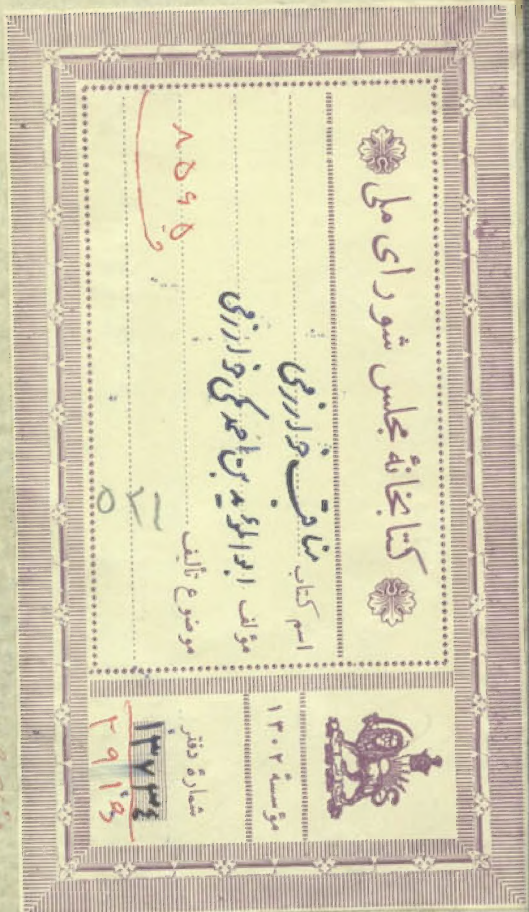 کتابخانهٔ مجلس شورای ملی
اسم کتاب مناقب خوارزمی
مؤلف ابو المؤید بن احمد مکی خوارزمی
موضوع تألیف
۵۲۱
۸۵۶۵
مؤسسهٔ ۱۳۰۲
شمارهٔ دفتر
۱۳۷۳۴